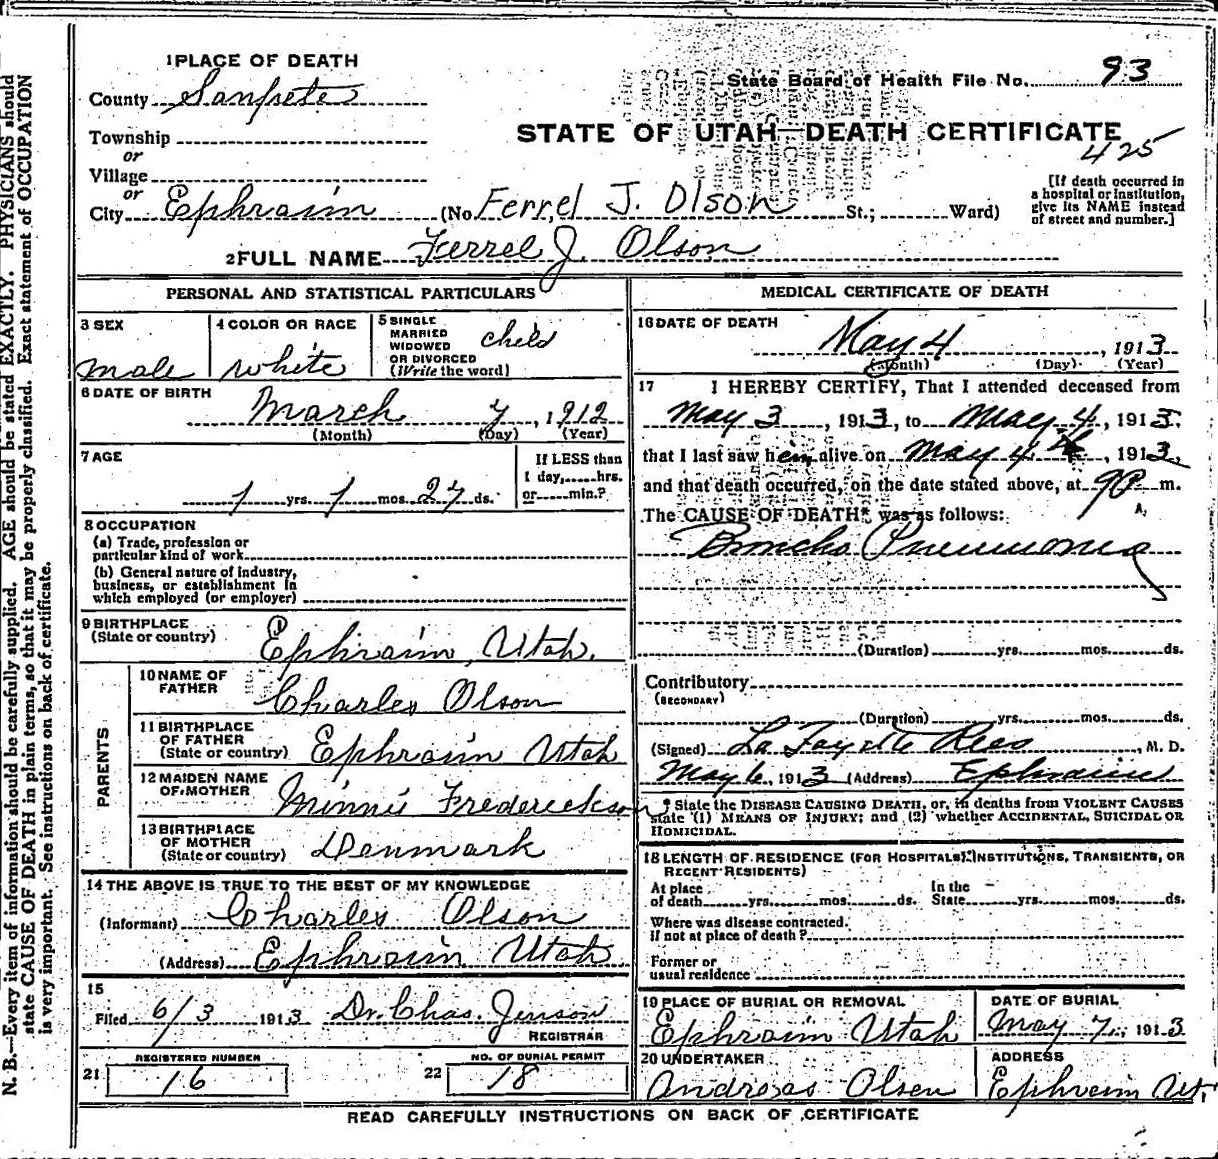 1 PLACE OF DEATH
County Sanpete
State Board of Health File No. 93
Township
or
Village
or
STATE OF UTAH—DEATH CERTIFICATE
425
City Ephraim (No. Ferrel J. Olson St.; Ward)
[If death occurred in
a hospital or institution,
give its NAME instead
of street and number.]
2 FULL NAME Ferrel J. Olson
PERSONAL AND STATISTICAL PARTICULARS
3 SEX
male
4 COLOR OR RACE
white
5 SINGLE
MARRIED
WIDOWED
OR DIVORCED
(Write the word)
child
6 DATE OF BIRTH
March 7, 1912
(Month) (Day) (Year)
7 AGE
1 yrs. 1 mos. 27 ds.
If LESS than
1 day, hrs.
or min.?
8 OCCUPATION
(a) Trade, profession or
particular kind of work
(b) General nature of industry,
business, or establishment in
which employed (or employer)
9 BIRTHPLACE
(State or country)
Ephraim, Utah.
PARENTS
10 NAME OF
FATHER
Charles Olson
11 BIRTHPLACE
OF FATHER
(State or country)
Ephraim Utah
12 MAIDEN NAME
OF MOTHER
Minnie Frederickson
13 BIRTHPLACE
OF MOTHER
(State or country)
Denmark
14 THE ABOVE IS TRUE TO THE BEST OF MY KNOWLEDGE
(Informant) Charles Olson
(Address) Ephraim Utah
15
Filed 6/3 1913 Dr. Chas. Jenson
REGISTRAR
21
REGISTERED NUMBER
16
22
NO. OF BURIAL PERMIT
18
MEDICAL CERTIFICATE OF DEATH
16 DATE OF DEATH
May 4, 1913
(Month) (Day) (Year)
17 I HEREBY CERTIFY, That I attended deceased from
May 3, 1913, to May 4, 1913,
that I last saw him alive on May 4th, 1913,
and that death occurred, on the date stated above, at 9 m.
A.
The CAUSE OF DEATH* was as follows:
Broncho Pneumonia
(Duration) yrs. mos. ds.
Contributory
(SECONDARY)
(Duration) yrs. mos. ds.
(Signed) La Fayette Rees, M. D.
May 6, 1913 (Address) Ephraim
* State the DISEASE CAUSING DEATH, or, in deaths from VIOLENT CAUSES
state (1) MEANS OF INJURY; and (2) whether ACCIDENTAL, SUICIDAL OR
HOMICIDAL.
18 LENGTH OF RESIDENCE (FOR HOSPITALS, INSTITUTIONS, TRANSIENTS, OR
RECENT RESIDENTS)
At place
of death yrs. mos. ds.
In the
State yrs. mos. ds.
Where was disease contracted.
if not at place of death?
Former or
usual residence
19 PLACE OF BURIAL OR REMOVAL
Ephraim Utah
DATE OF BURIAL
May 7, 1913
20 UNDERTAKER
Andreas Olsen
ADDRESS
Ephraim Ut.
READ CAREFULLY INSTRUCTIONS ON BACK OF CERTIFICATE
N. B.—Every item of information should be carefully supplied. AGE should be stated EXACTLY. PHYSICIANS should
state CAUSE OF DEATH in plain terms, so that it may be properly classified. Exact statement of OCCUPATION
is very important. See instructions on back of certificate.